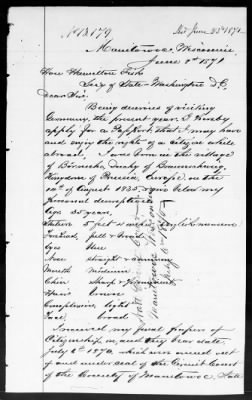 No 13179
Manitowoc, Wisconsin
June 8th 1871
Hon Hamilton Fish
Secy of State - Washington D.C.
Dear Sir:
Being desirous of visiting
Germany, the present year, I hereby
apply for a Passport, that I may have
and enjoy the rights of a Citizen while
abroad. I was born in the village
of County of
Kingdom of Prussia, Europe, on the
of August 1835 & give below my
personal description
Age 35 years,
Stature 5 feet
Forehead, full &
Eyes blue
Nose straight &
Mouth Medium
Chin
Hair, Brown
Complexion, light
Face, broad
I received my final papers of
Citizenship, in, and they bear date,
July 6th 1870, which were issued out
of and under seal of the Circuit Court
of the County of Manitowoc, State